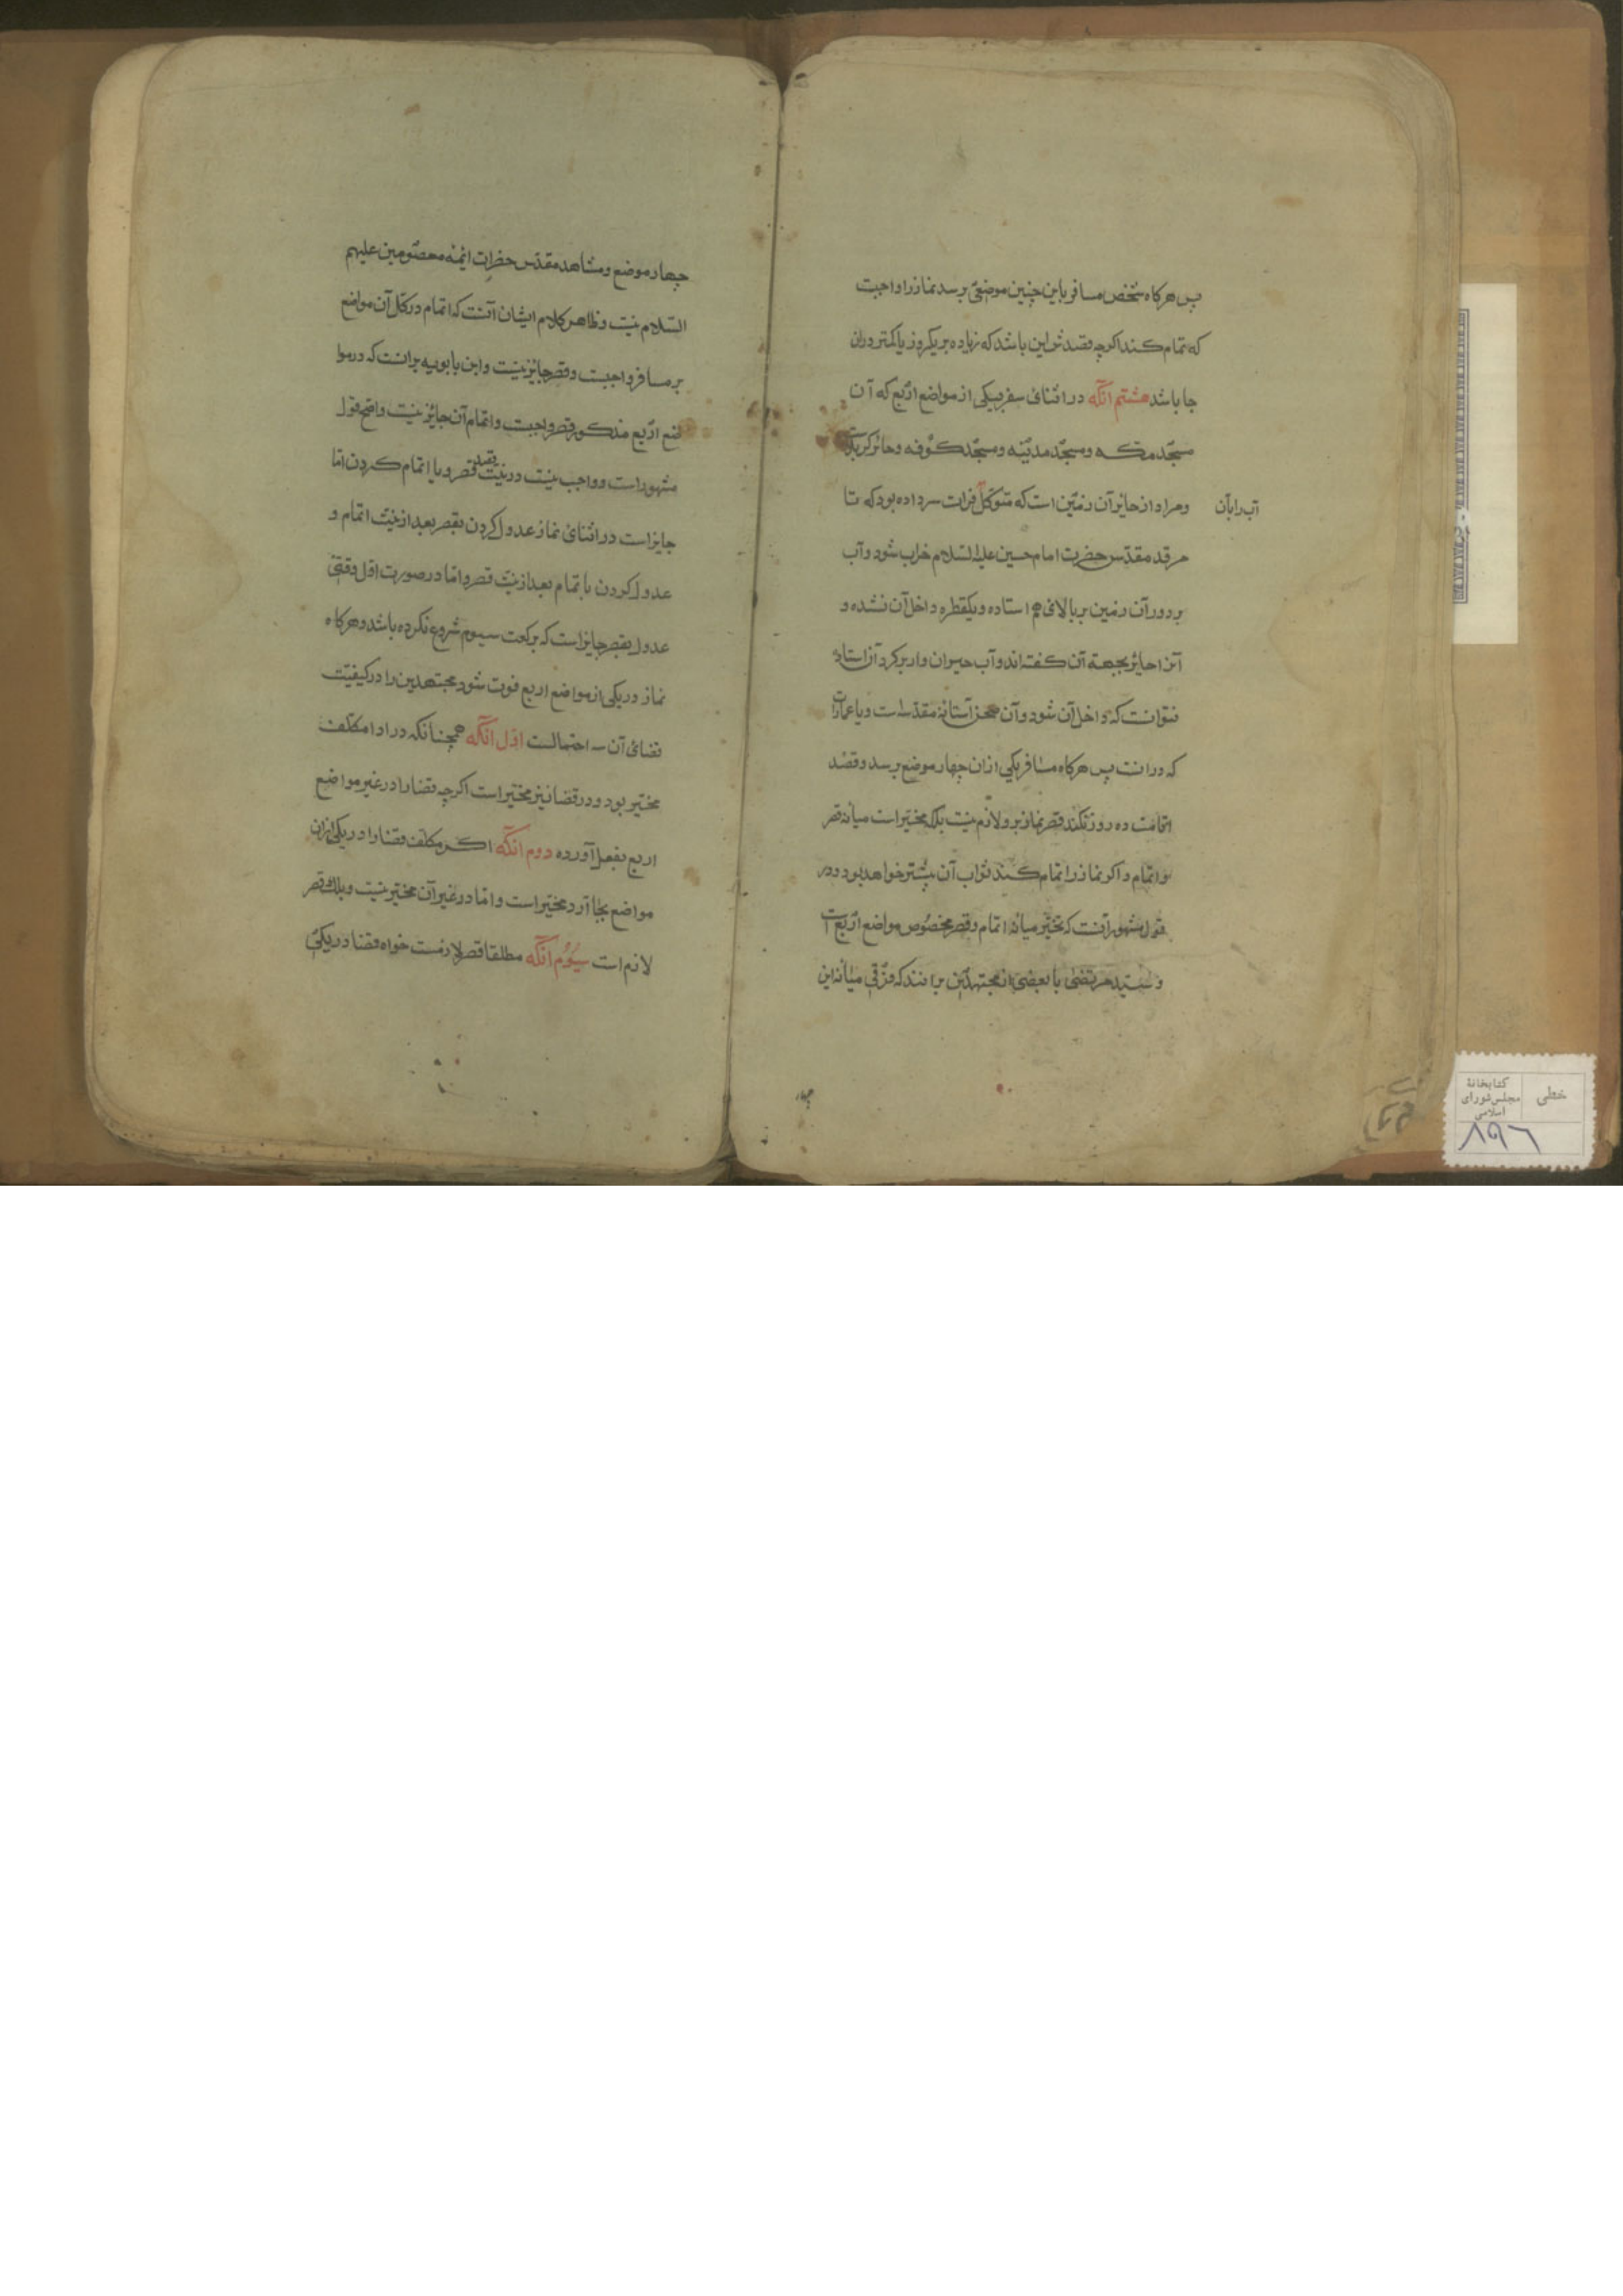 پس هرکاه شخص مسافر باین چنین موضعی برسد نماز را واجبست
که تمام کند اکرچه قصدش این باشد که زیاده بر یکروز یا کمتر دران
جا باشد هشتم آنکه در اثنای سفر بیکی از مواضع اربع که آن
مسجد مکه و مسجد مدینه و مسجد کوفه و حائر کربلاست
ومراد از حایر آن زمین است که متوکل فرات سر داده بود که تا
آب را بآن
مرقد مقدس حضرت امام حسین علیه السلام خراب شود و آب
بر دور آن زمین بر بالای هم استاده و یکقطره داخل آن نشده و
آنرا حائر بجهة آن کفته اند و آب حیران وار بر کرد آن استاده
نتوانست که داخل آن شود و آن صحن آستانهٔ مقدسه است و یا عمارات
که درانست پس هرکاه مسافر بیکی ازان چهار موضع برسد و قصد
اقامت ده روز نکند قصر نماز برو لازم نیست بلکه مخیر است میانه قصر
و اتمام و اکر نماز را تمام کند ثواب آن بیشتر خواهد بود و در
قول مشهور آنست که تخییر میانه اتمام و قصر مخصوص مواضع اربع است
و سید مرتضی با بعضی از مجتهدین برانند که فرقی میانه این
چهار
چهار موضع و مشاهد مقدس حضرات ائمه معصومین علیهم
السلام نیست و ظاهر کلام ایشان آنست که اتمام در کل آن مواضع
بر مسافر واجبست و قصر جایز نیست و ابن بابویه برانست که در موا
ضع اربع مذکور قصر واجبست و اتمام آن جائز نیست و اصح قول
مشهور است و واجب نیست در نیت قصد قصر و یا اتمام کردن اما
جایز است در اثنای نماز عدول کردن بقصر بعد از نیت اتمام و
عدول کردن باتمام بعد از نیت قصر و اما در صورت اول وقتی
عدول بقصر جایز است که برکعت سیوم شروع نکرده باشد و هرکاه
نماز در یکی از مواضع اربع فوت شود مجتهدین را در کیفیت
قضای آن سه احتمالست اول آنکه همچنانکه در ادا مکلف
مخیر بود و در قضا نیز مخیر است اکرچه قضا را در غیر مواضع
اربع بفعل آورده دوم آنکه اکر مکلف قضا را در یکی ازان
مواضع بجا آرد مخیر است و اما در غیر آن مخیر نیست و بلکه قصر
لازم است سیوم آنکه مطلقا قصر لازمست خواه قضا در یکی
خطی
کتابخانهٔ
مجلس شورای
اسلامی